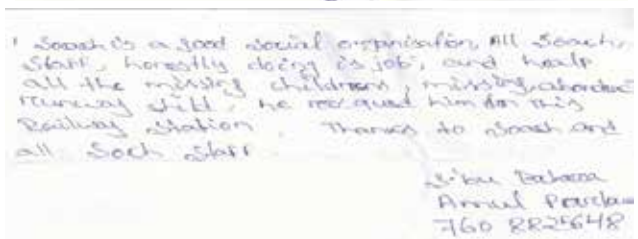 " Soach is a good social organisation, All Soach,
Staff, honestly doing is job, and healp
all the missing childrens, missing
runway child, he recqued him from this
Railway station. Thanks to Soach and
all Soch staff
Amul
760 8825648